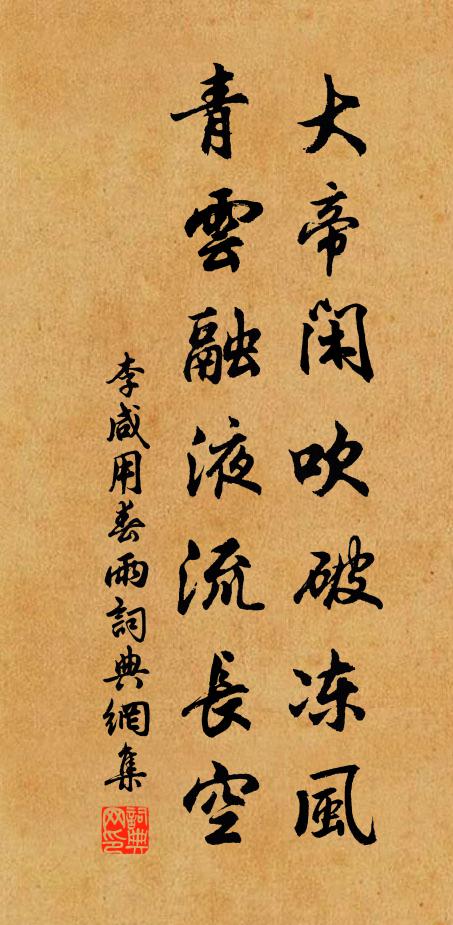 大帝閑吹破冻風
青雲融液流長空
李咸用春雨詞典網集
詞典网印